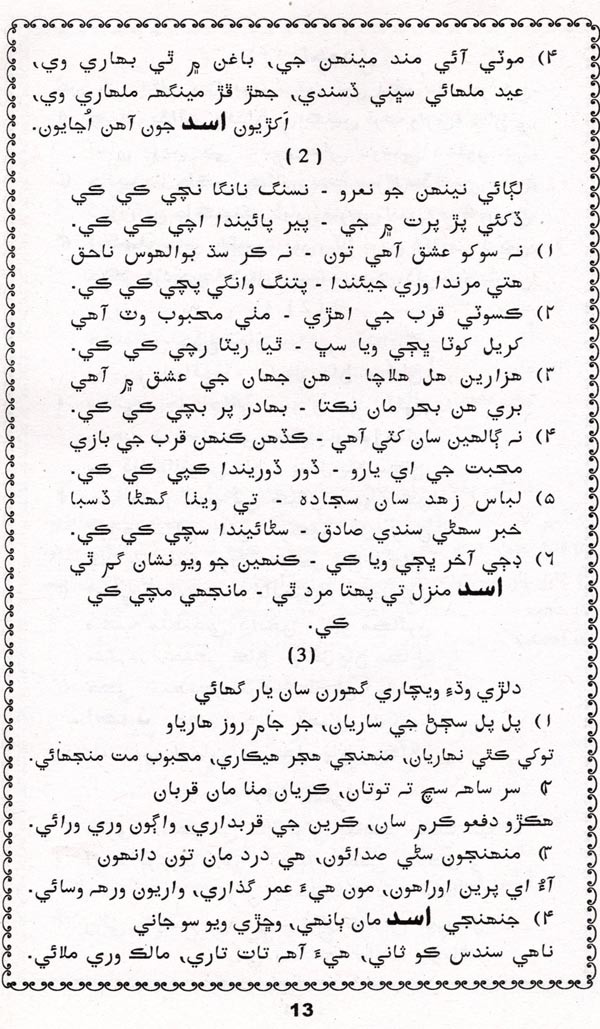 ۴) موٽي آئي مند مينهن جي، باغن ۾ ٿي بهاري وي،
عيد ملهائي سڀني ڏسندي، جهڙ ڦڙ مينگهہ ملهاري وي،
اَکڙيون اسد جون آهن اُڃايون.
(2)
لڳائي نينهن جو نعرو - نسنگ نانگا نچي ڪي ڪي
ڏکئي پڙ پرت ۾ جي - پير پائيندا اچي ڪي ڪي.
۱) نہ سوکو عشق آهي تون - نہ ڪر سڌ بوالهوس ناحق
هتي مرندا وري جيئندا - پتنگ وانگي پچي ڪي ڪي.
۲) ڪسوٽي قرب جي اهڙي - مٺي محبوب وٽ آهي
کريل کوٽا ڀڄي ويا سڀ - ٿيا ريٽا رچي ڪي ڪي.
۳) هزارين هل هلاچا - هن جهان جي عشق ۾ آهي
بري هن بحر مان نڪتا - بهادر پر بچي ڪي ڪي.
۴) نہ ڳالهين سان کٽي آهي - ڪڏهن ڪنهن قرب جي بازي
محبت جي اي يارو - ڏور ڏوريندا کپي ڪي ڪي.
۵) لباس زهد سان سجاده - تي ويٺا گهڻا ڏسبا
خبر سهڻي سندي صادق - سڻائيندا سچي ڪي ڪي.
۶) ڊڄي آخر ڀڄي ويا ڪي - ڪنهين جو ويو نشان گم ٿي
اسد منزل تي پهتا مرد ٿي - مانجهي مچي ڪي
ڪي.
(3)
دلڙي وڌءِ ويچاري گهورن سان يار گهائي
۱) پل پل سڄڻ جي ساريان، جر ڄام روز هاريان
توکي ڪٿي نهاريان، منهنجي هجر هيڪاري، محبوب مت منجهائي.
۲) سر ساهہ سچ تہ توتان، ڪريان مٺا مان قربان
هڪڙو دفعو ڪرم سان، ڪرين جي قربداري، واڳون وري ورائي.
۳) منهنجون سڻي صدائون، هي درد مان تون دانهون
آءُ اي پرين اوراهون، مون هيءَ عمر گذاري، واريون ورهہ وسائي.
۴) جنهنجي اسد مان ٻانهي، وڇڙي ويو سو جاني
ناهي سندس ڪو ثاني، هيءَ آهہ تات تاري، مالڪ وري ملائي.
13